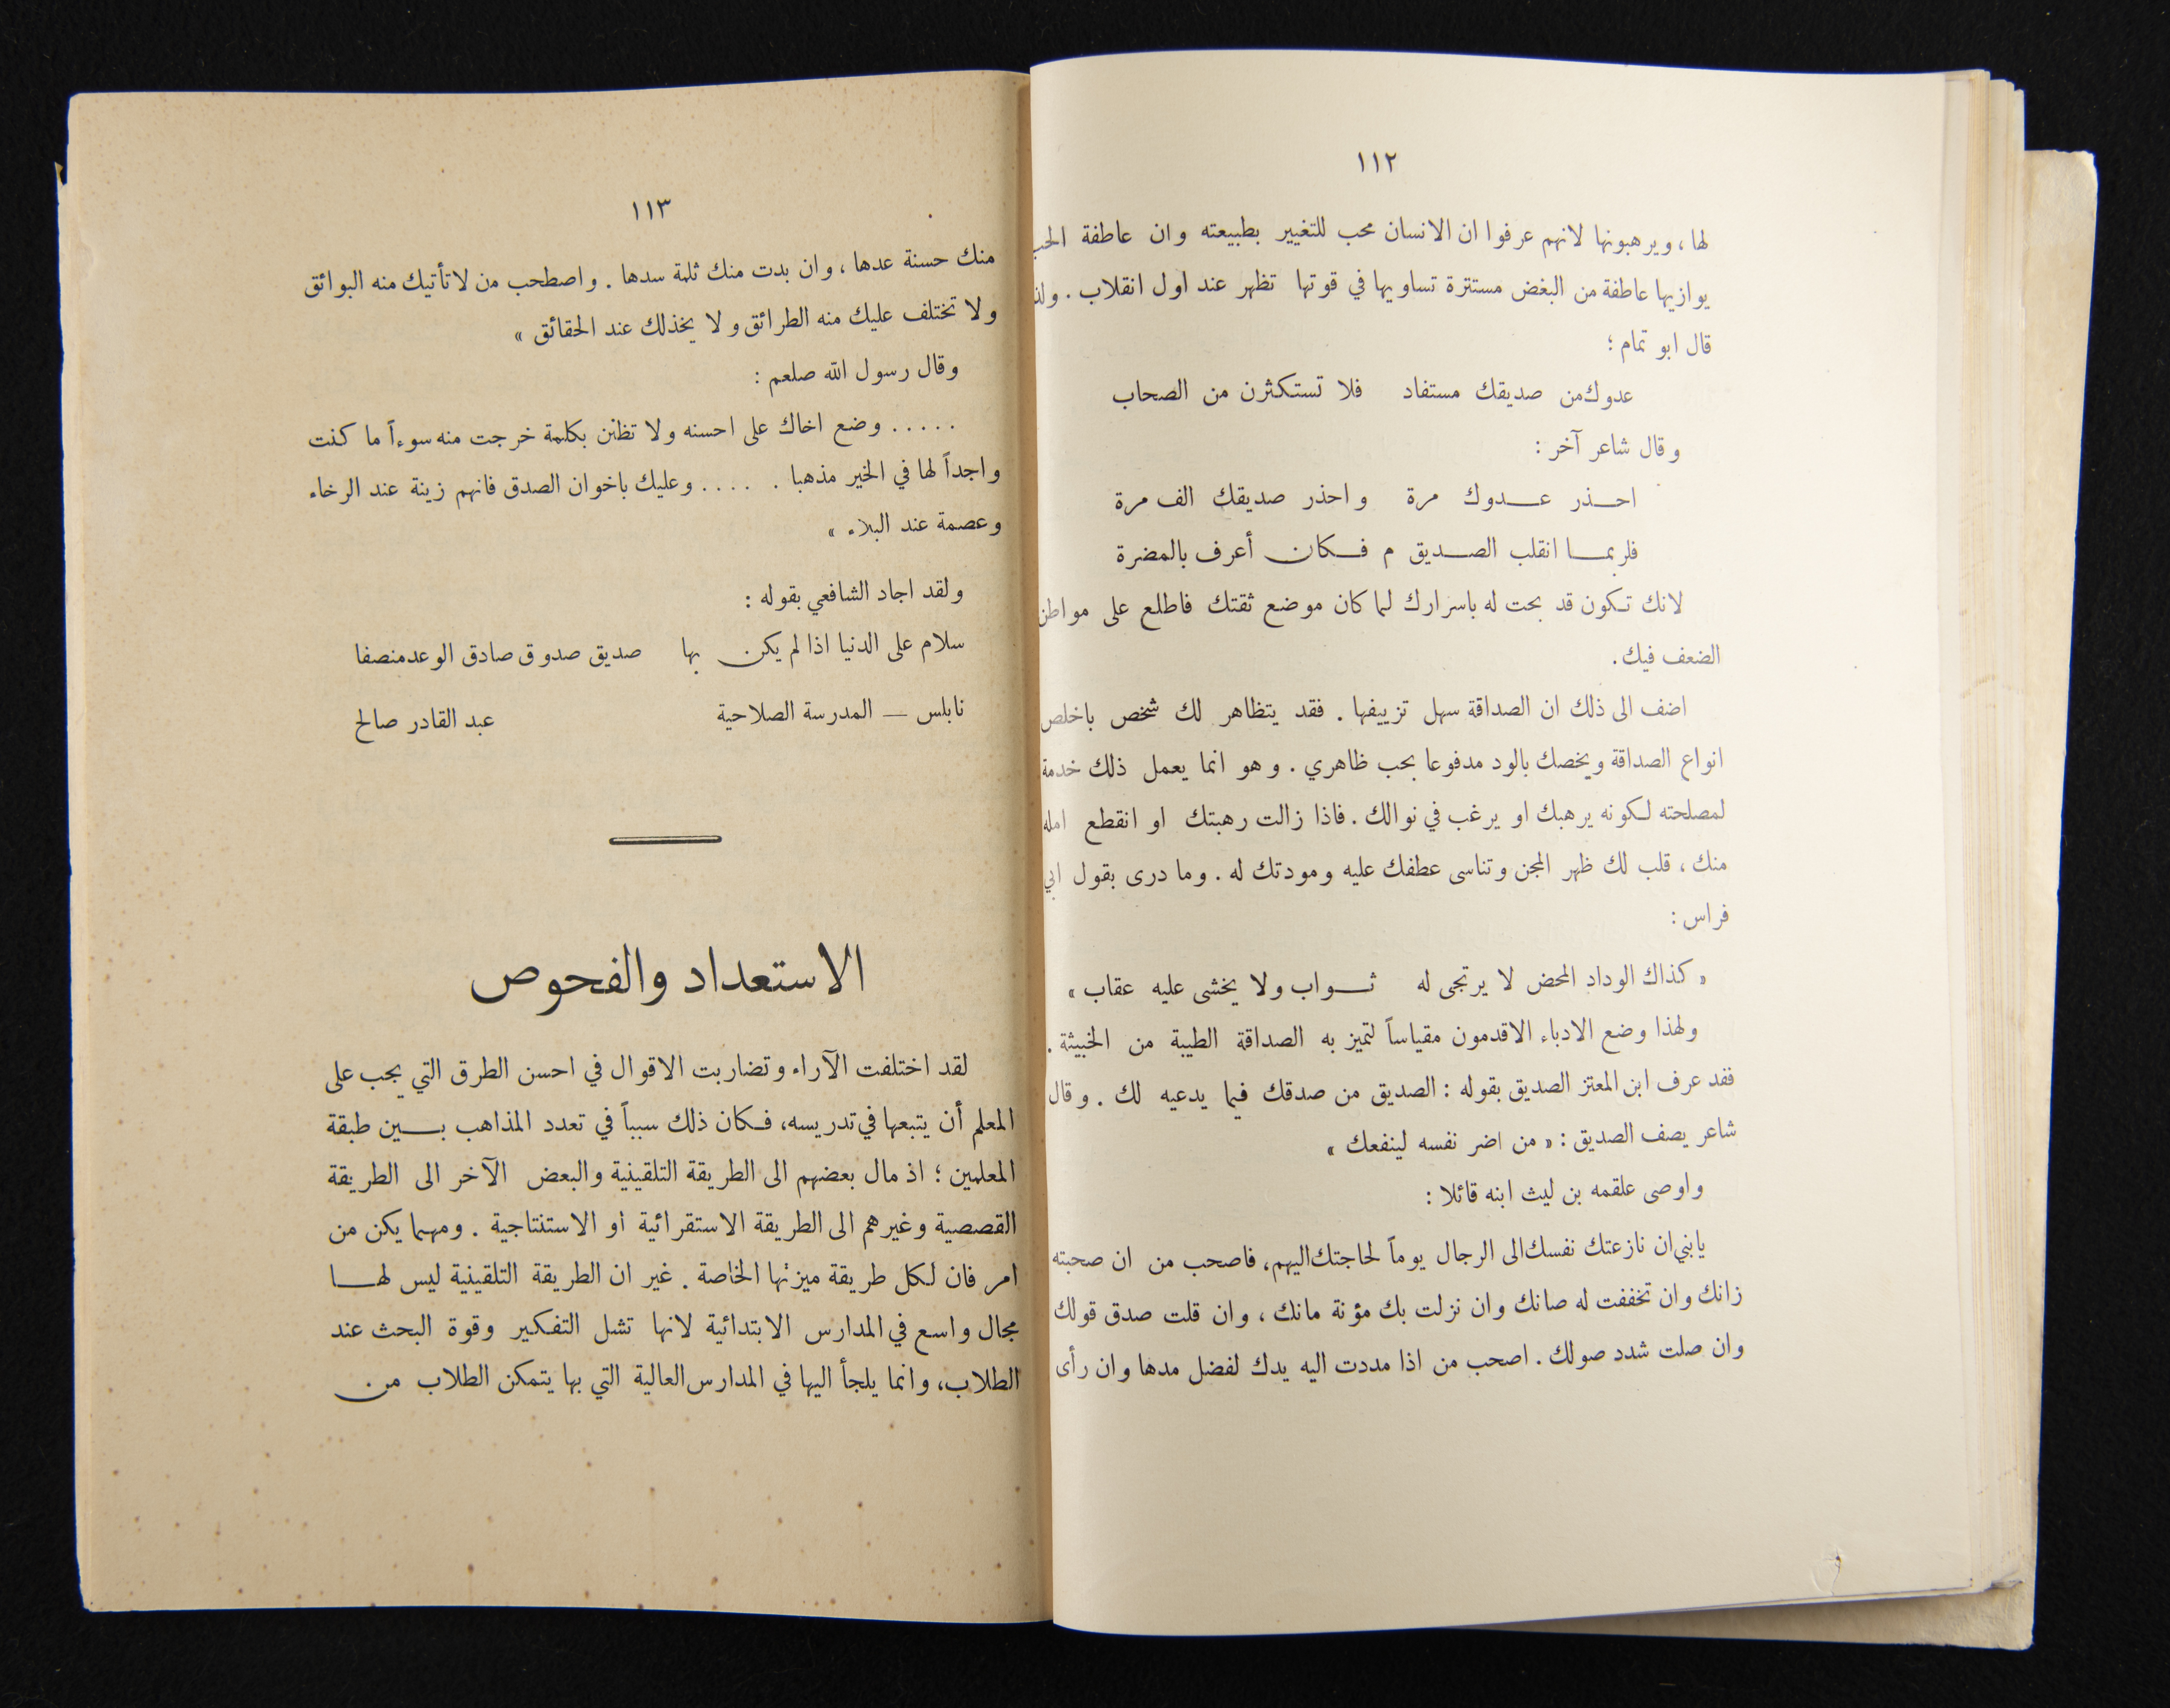 ١١٢
لها، ويرهبونها لانهم عرفوا ان الانسان محب للتغيير بطبيعته وان عاطفة الحب
يوازيها عاطفة من البغض مستترة تساويها في قوتها تظهر عند اول انقلاب. ولذ
قال ابو تمام؛
عدوك من صديقك مستفاد فلا تستكثرن من الصحاب
وقال شاعر آخر:
احــذر عــدوك مرة واحذر صديقك الف مرة
فلربمــا انقلب الصــديق م فــكان أعرف بالمضرة
لانك تكون قد بحت له باسرارك لما كان موضع ثقتك فاطلع على مواطن
الضعف فيك.
اضف الى ذلك ان الصداقة سهل تزييفها. فقد يتظاهر لك شخص باخلص
انواع الصداقة ويخصك بالود مدفوعا بحب ظاهري. وهو انما يعمل ذلك خدمة
لمصلحته لكونه يرهبك او يرغب في نوالك. فاذا زالت رهبتك او انقطع امله
منك، قلب لك ظهر المجن وتناسى عطفك عليه ومودتك له. وما درى بقول ابي
فراس:
« كذاك الوداد المحض لا يرتجى له ثــواب ولا يخشى عليه عقاب »
ولهذا وضع الادباء الاقدمون مقياساً لتميز به الصداقة الطيبة من الخبيثة.
فقد عرف ابن المعتز الصديق بقوله: الصديق من صدقك فيما يدعيه لك. وقال
شاعر يصف الصديق: « من اضر نفسه لينفعك »
واوصى علقمه بن ليث ابنه قائلا:
يابني ان نازعتك نفسك الى الرجال يوماً لحاجتك اليهم، فاصحب من ان صحبته
زانك وان تخففت له صانك وان نزلت بك مؤنة مانك، وان قلت صدق قولك
وان صلت شدد صولك. اصحب من اذا مددت اليه يدك لفضل مدها وان رأى
١١٣
منك حسنة عدها، وان بدت منك ثلمة سدها. واصطحب من لا تأتيك منه البوائق
ولا تختلف عليك منه الطرائق ولا يخذلك عند الحقائق »
وقال رسول الله صلعم:
..... وضع اخاك على احسنه ولا تظنن بكلمة خرجت منه سوءاً ما كنت
واجداً لها في الخير مذهبا. .... وعليك باخوان الصدق فانهم زينة عند الرخاء
وعصمة عند البلاء »
ولقد اجاد الشافعي بقوله:
سلام على الدنيا اذا لم يكن بها صديق صدوق صادق الوعد منصفا
نابلس — المدرسة الصلاحية عبد القادر صالح
الاستعداد والفحوص
لقد اختلفت الآراء وتضاربت الاقوال في احسن الطرق التي يجب على
المعلم أن يتبعها في تدريسه، فكان ذلك سبباً في تعدد المذاهب بــين طبقة
المعلمين؛ اذ مال بعضهم الى الطريقة التلقينية والبعض الآخر الى الطريقة
القصصية وغيرهم الى الطريقة الاستقرائية او الاستنتاجية. ومهما يكن من
امر فان لكل طريقة ميزتها الخاصة. غير ان الطريقة التلقينية ليس لهــا
مجال واسع في المدارس الابتدائية لانها تشل التفكير وقوة البحث عند
الطلاب، وانما يلجأ اليها في المدارس العالية التي بها يتمكن الطلاب من